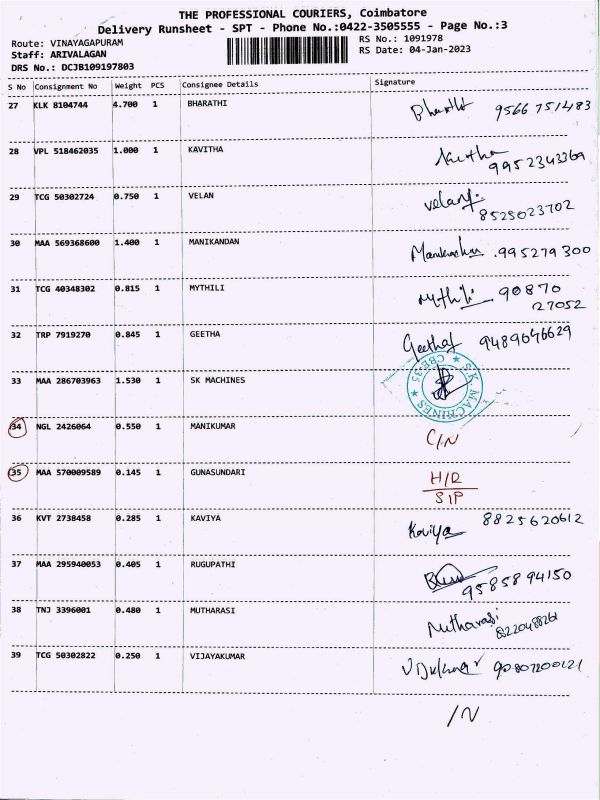 THE PROFESSIONAL COURIERS, Coimbatore
Delivery Runsheet - SPT - Phone No.:0422-3505555 - Page No.:3
Route: VINAYAGAPURAM RS No.: 1091978
Staff: ARIVALAGAN RS Date: 04-Jan-2023
DRS No.: DCJB109197803
S No Consignment No Weight PCS Consignee Details Signature
27 KLK 8104744 4.700 1 BHARATHI Bharathi 9566 751483
28 VPL 518462035 1.000 1 KAVITHA Kavitha
9952343369
29 TCG 50302724 0.750 1 VELAN velan
8525023702
30 MAA 569368600 1.400 1 MANIKANDAN .995279300
31 TCG 40348302 0.815 1 MYTHILI Mythili 90870
27052
32 TRP 7919270 0.845 1 GEETHA Geetha 9489046629
33 MAA 286703963 1.530 1 SK MACHINES S.K MACHINES ★ CBE-35 ★
34 NGL 2426064 0.550 1 MANIKUMAR C/N
35 MAA 570009589 0.145 1 GUNASUNDARI H/R
SIP
36 KVT 2738458 0.285 1 KAVIYA Kaviya 8825620612
37 MAA 295940053 0.405 1 RUGUPATHI
9585894150
38 TNJ 3396001 0.480 1 MUTHARASI Mutharasi
39 TCG 50302822 0.250 1 VIJAYAKUMAR 90807200121
/N